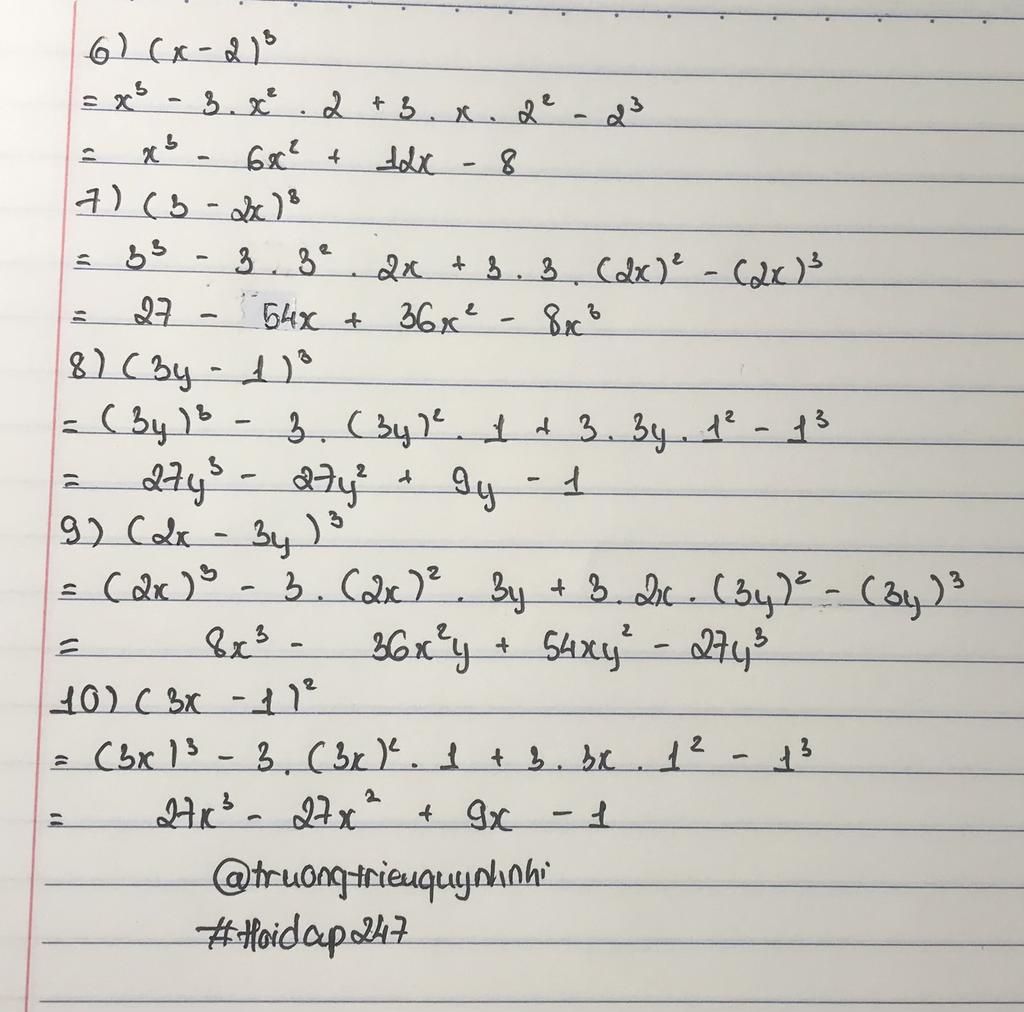 6) (x - 2)³
= x³ - 3. x² . 2 + 3 . x . 2² - 2³
= x³ - 6x² + 12x - 8
7) (3 - 2x)³
= 3³ - 3 . 3² . 2x + 3 . 3 . (2x)² - (2x)³
= 27 - 54x + 36x² - 8x³
8) (3y - 1)³
= (3y)³ - 3. (3y)² . 1 + 3 . 3y . 1² - 1³
= 27y³ - 27y² + 9y - 1
9) (2x - 3y)³
= (2x)³ - 3. (2x)² . 3y + 3. 2x . (3y)² - (3y)³
= 8x³ - 36x²y + 54xy² - 27y³
10) (3x - 1)²
= (3x)³ - 3. (3x)² . 1 + 3 . 3x . 1² - 1³
= 27x³ - 27x² + 9x - 1
@truongtrieuquynhnhi
#Hoidap247